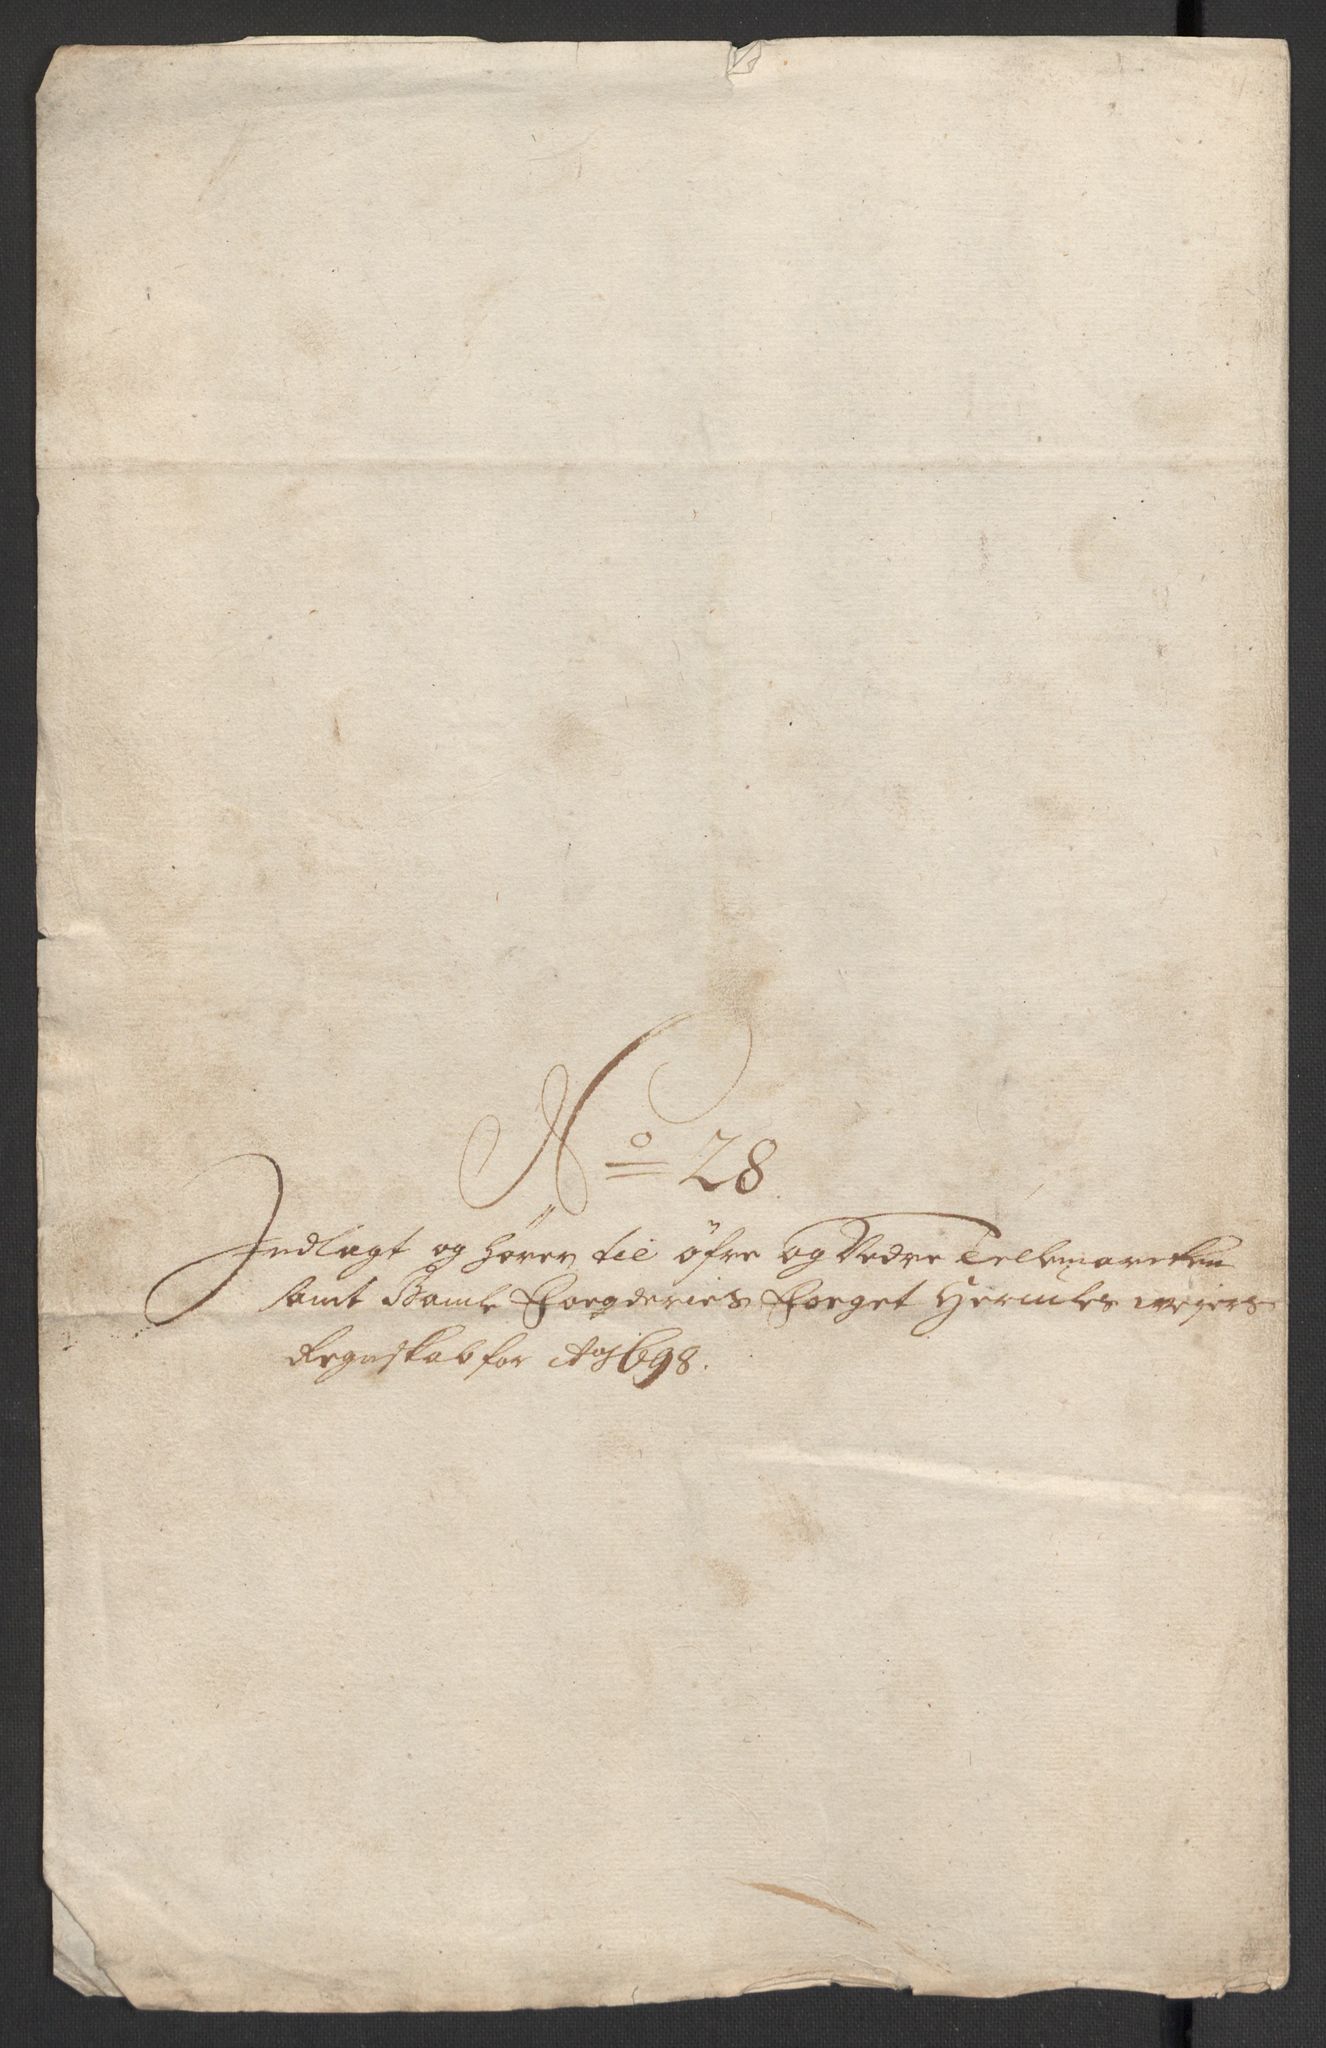 No 28
Indlagt og hører til öfre og Nedre Tellemarcken
samt Bamle Foegderies Foeget Hermles weyers
Regnskab for Ao 1698.